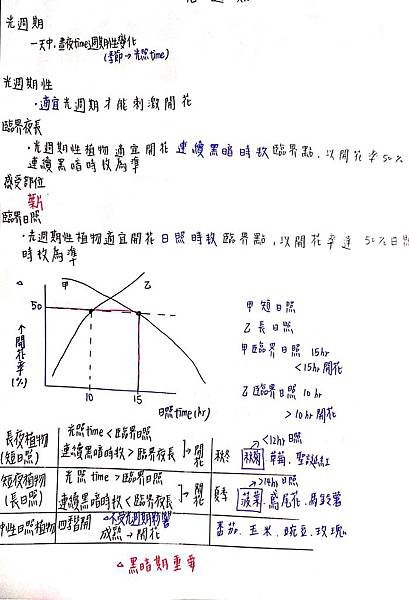 光週期
一天中,晝夜time週期性變化
(季節→光照time)
光週期性
・適宜光週期才能刺激開花
臨界夜長
・光週期性植物適宜開花連續黑暗時數臨界點,以開花率50%
連續黑暗時數為準
感受部位
葉片
臨界日照
・光週期性植物適宜開花日照時數臨界點,以開花率達50%日照
時數為準
甲 乙
50
↑開花率(%)
10 15
日照time(hr)
甲短日照
乙長日照
甲臨界日照 15hr
<15hr開花
乙臨界日照 10hr
>10hr開花
長夜植物
(短日照)
光照time<臨界日照
連續黑暗時數>臨界夜長
開花
秋冬
<12hr日照
秋菊 草莓、聖誕紅
短夜植物
(長日照)
光照time>臨界日照
連續黑暗時數<臨界夜長
開花
夏季
>14hr日照
菠菜、鳶尾花、馬鈴薯
中性日照植物
四季開
不受光週期影響
成熟→開花
番茄、玉米、豌豆、玫瑰
黑暗期重要